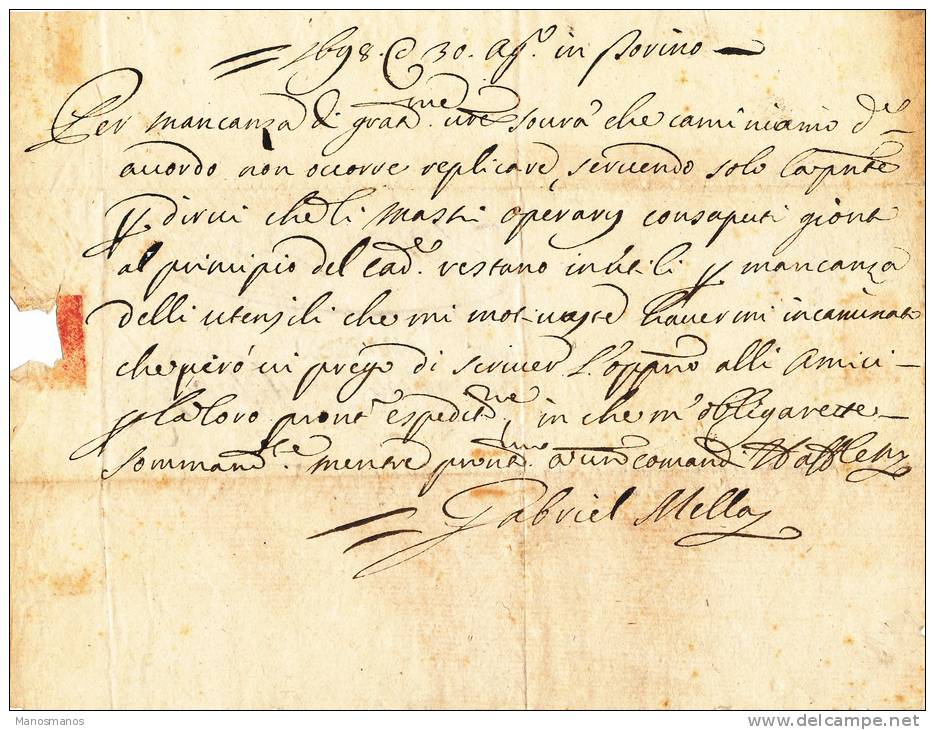 1698 @ 30. Ag.o in Torino
Per mancanza di grat.me vre sourà che caminiamo d'
acordo non occorre replicare, seruendo solo la pnte
p. dirui che li mastri operarij consaputi gionti
al principio del cad.e restano inutili p mancanza
delli utensili che mi motiuaste hauermi incaminato
che però ui prego di scriuer l'oppno alli Amici
p la loro pront.a espedit.ne, in che m'obligarette
sommam.te mentre pront.mo a uri comandi
Gabriel Mella
Manosmanos
www.delcampe.net